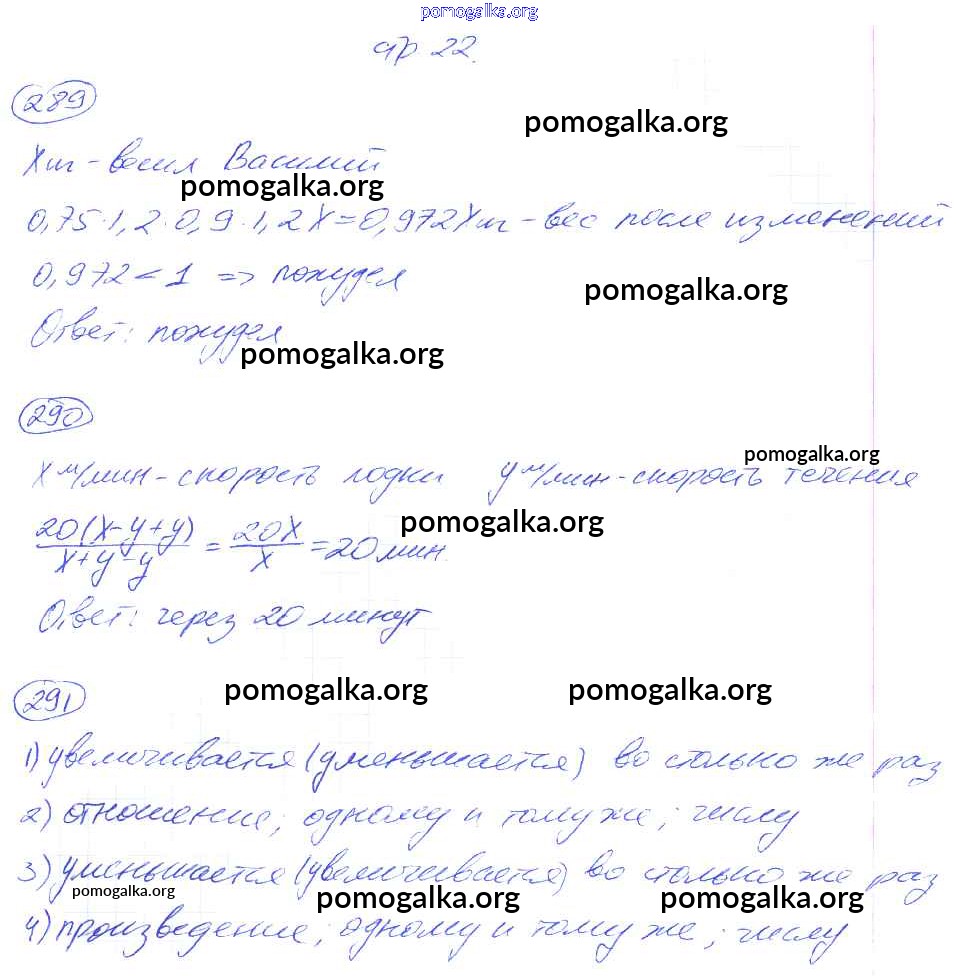 pomogalka.org
стр 22.
289
pomogalka.org
X кг - весил Василий
pomogalka.org
0,75·1,2·0,9·1,2X=0,972X кг - вес после изменений
0,972<1 => похудел
pomogalka.org
Ответ: похудел
pomogalka.org
290
pomogalka.org
X м/мин - скорость лодки y м/мин - скорость течения
pomogalka.org
20(X-y+y)/X+y-y = 20X/X = 20 мин.
Ответ: через 20 минут
291
pomogalka.org pomogalka.org
1) увеличивается (уменьшается) во столько же раз
2) отношение; одному и тому же; числу
3) уменьшается (увеличивается) во столько же раз
pomogalka.org pomogalka.org pomogalka.org
4) произведение; одному и тому же; числу